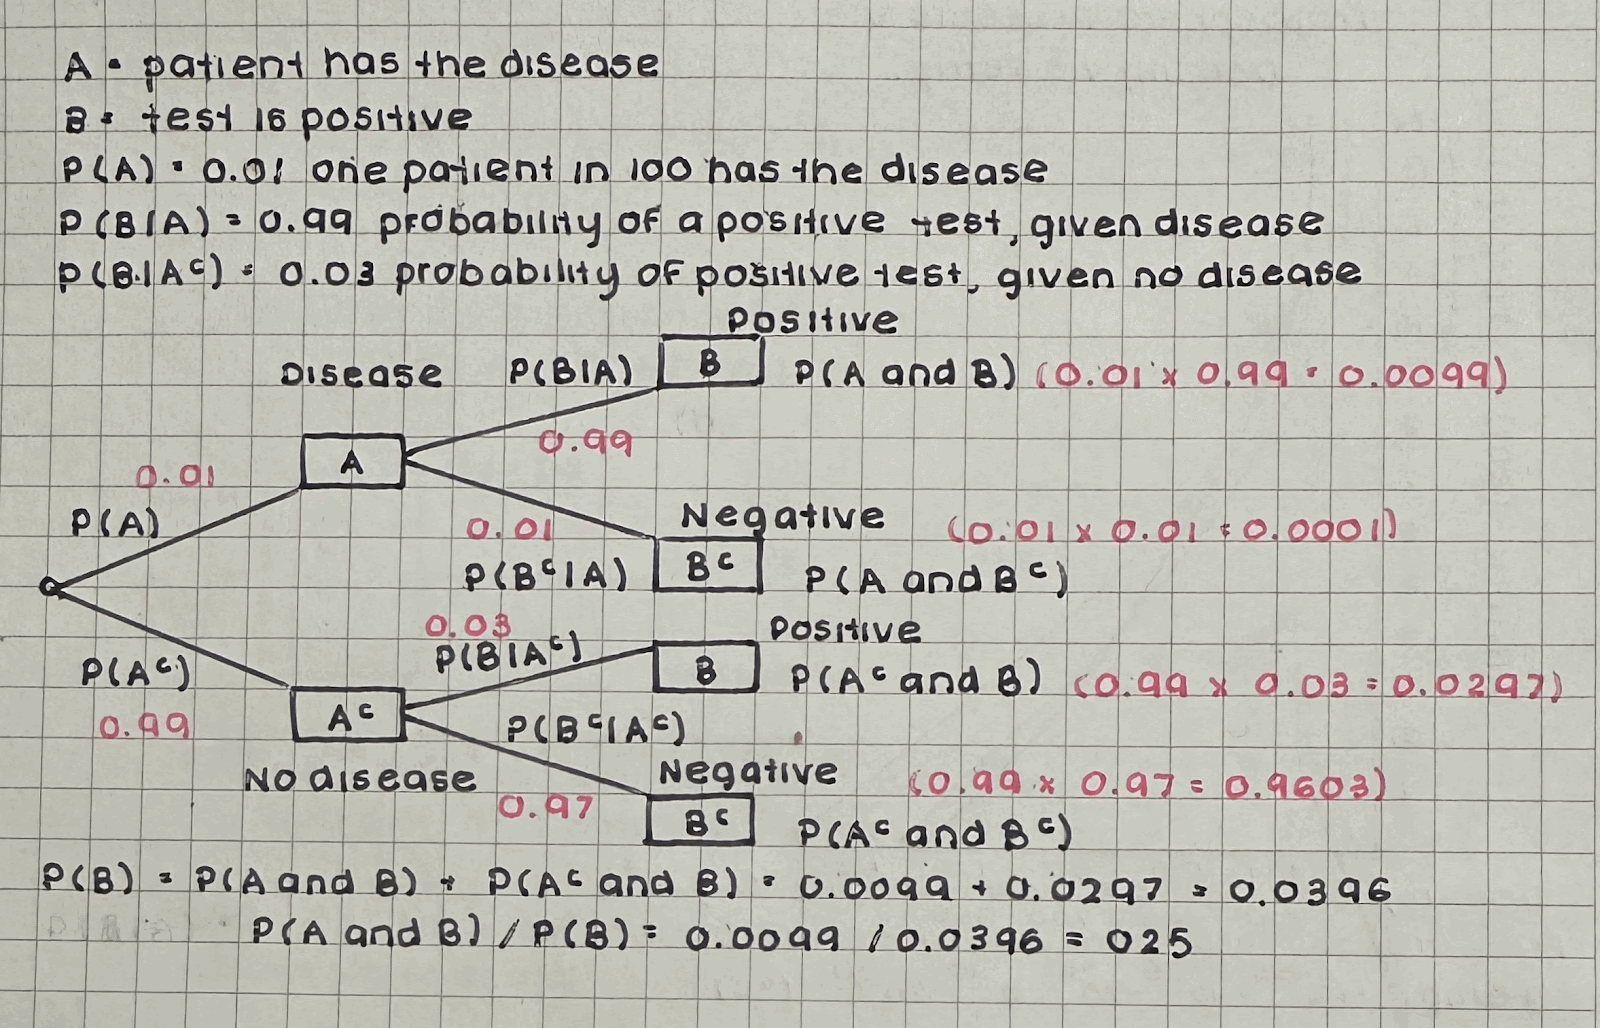 A = patient has the disease
B = test is positive
P(A) = 0.01 one patient in 100 has the disease
P(B|A) = 0.99 probability of a positive test, given disease
P(B|Aᶜ) = 0.03 probability of positive test, given no disease
Positive
Disease P(B|A) B P(A and B) (0.01 x 0.99 = 0.0099)
0.99
A
0.01
P(A)
0.01 Negative (0.01 x 0.01 = 0.0001)
P(Bᶜ|A) Bᶜ P(A and Bᶜ)
0.03 Positive
P(B|Aᶜ)
P(Aᶜ) B P(Aᶜ and B) (0.99 x 0.03 = 0.0297)
0.99 Aᶜ P(Bᶜ|Aᶜ)
No disease Negative (0.99 x 0.97 = 0.9603)
0.97 Bᶜ P(Aᶜ and Bᶜ)
P(B) = P(A and B) + P(Aᶜ and B) = 0.0099 + 0.0297 = 0.0396
P(A and B) / P(B) = 0.0099 / 0.0396 = 025